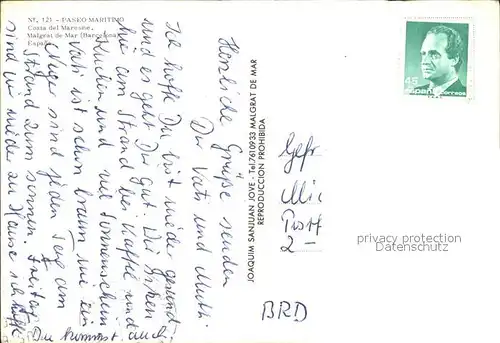 Nr. 121 - PASEO MARITIMO
Costa del Maresme.
Malgrat de Mar (Barcelona)
España
Herzliche Grüße senden
Dir Vati und Mutti.
Ich hoffe Du bist wieder gesund
und es geht Dir gut. Wir sitzen
hier am Strand bei Kaffee und
Kuchen und viel Sonnenschein
Vati ist schon braun wie ein
Neger sind jeden Tag am
Strand zum sonnen. Freitag
sind wir wieder zu Hause
Du kommst auch
JOAQUIM SANJUAN JOVE - Tel.7610933 MALGRAT DE MAR
REPRODUCCION PROHIBIDA
45
España
correos
Gefr
Mic
Postf
2-
BRD
privacy protection
www.oldthing.de